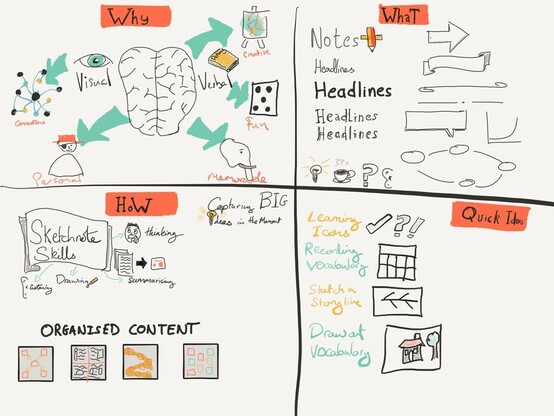 Why
Creative
Visual
Verbal
Connections
Fun
Personal
Memorable
What
Notes
Headlines
Headlines
Headlines
Headlines
How
Capturing BIG
Ideas in the Moment
Sketchnote
Skills
thinking
Listening
Drawing
Summarising
ORGANISED CONTENT
Quick Ideas
Learning
Icons
Recording
Vocabulary
Sketch a
Storyline
Draw at
Vocabulary